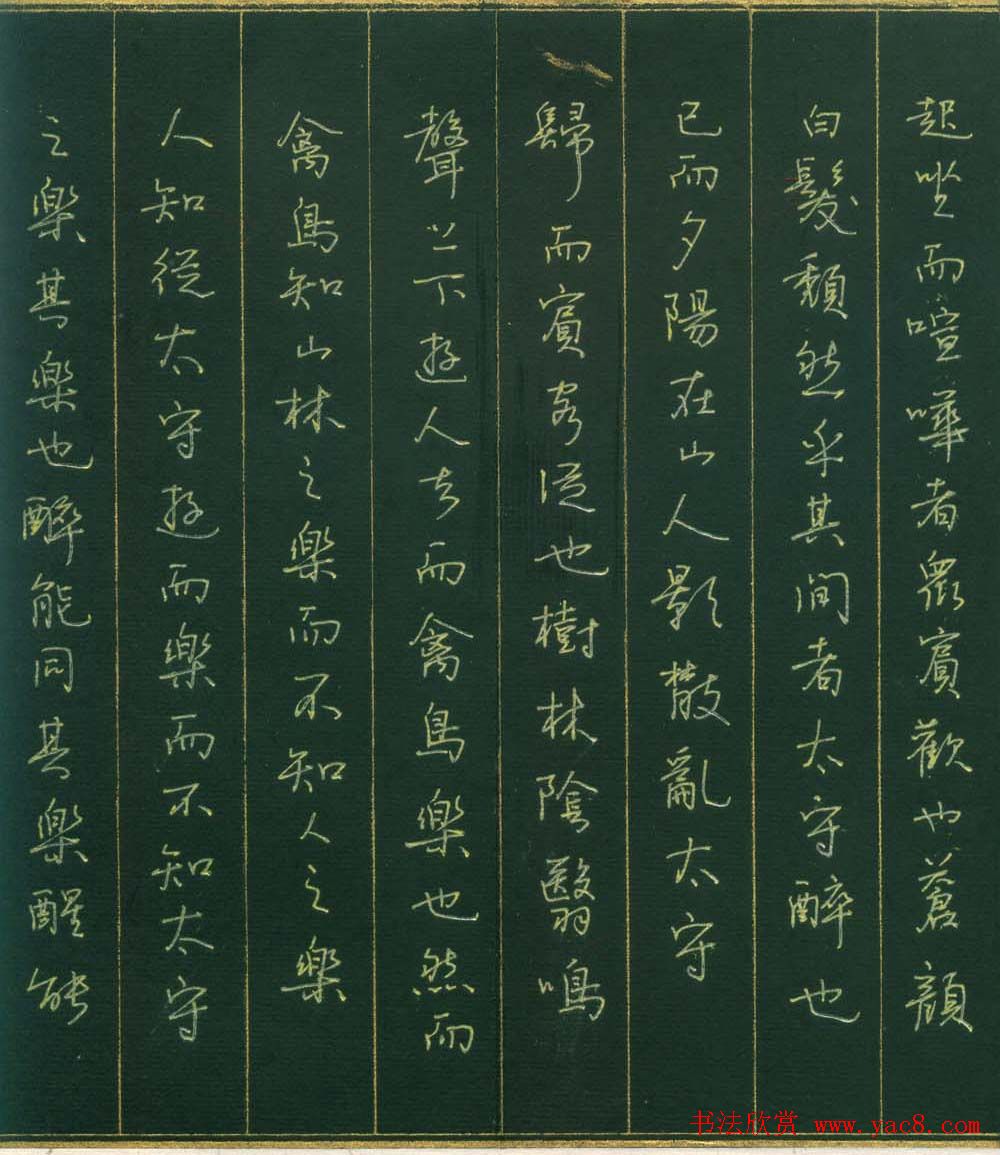 起坐而喧嘩者衆賓歡也蒼顏
白髮頹然乎其間者太守醉也
已而夕陽在山人影散亂太守
歸而賓客從也樹林陰翳鳴
聲上下遊人去而禽鳥樂也然而
禽鳥知山林之樂而不知人之樂
人知從太守遊而樂而不知太守
之樂其樂也醉能同其樂醒能
书法欣赏 www.yac8.com